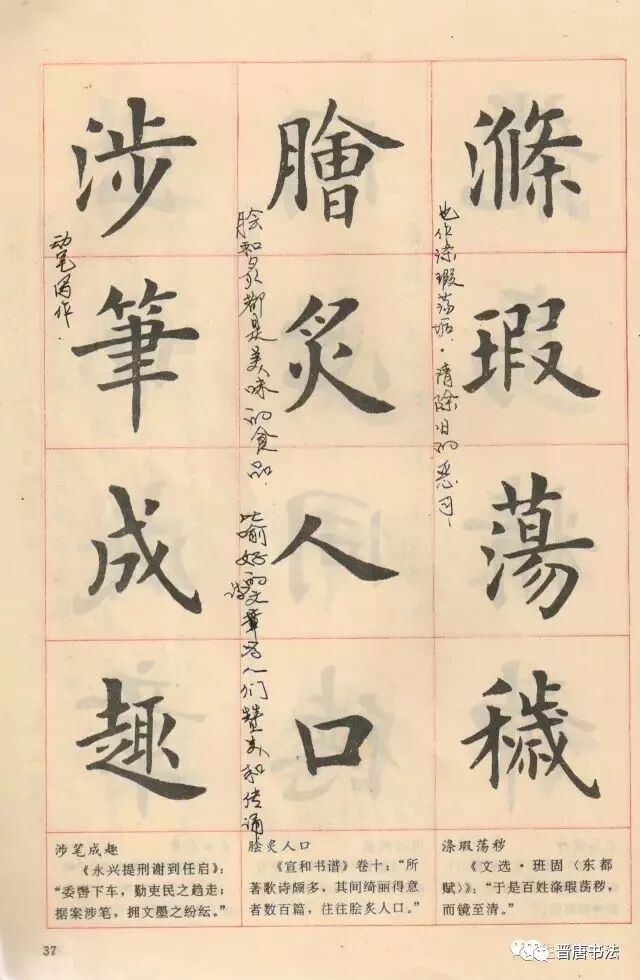 滌瑕蕩穢
也作涤瑕荡垢.清除旧的恶习
膾炙人口
脍和炙都是美味的食品. 比喻好的诗文章为人们赞美和传诵
涉筆成趣
动笔写作.
涉笔成趣
《永兴提刑谢到任启》：
“委辔下车，勤吏民之趋走；
据案涉笔，拥文墨之纷纭。”
脍炙人口
《宣和书谱》卷十：“所
著歌诗颇多，其间绮丽得意
者数百篇，往往脍炙人口。”
涤瑕荡秽
《文选·班固〈东都
赋〉》：“于是百姓涤瑕荡秽，
而镜至清。”
37
晋唐书法